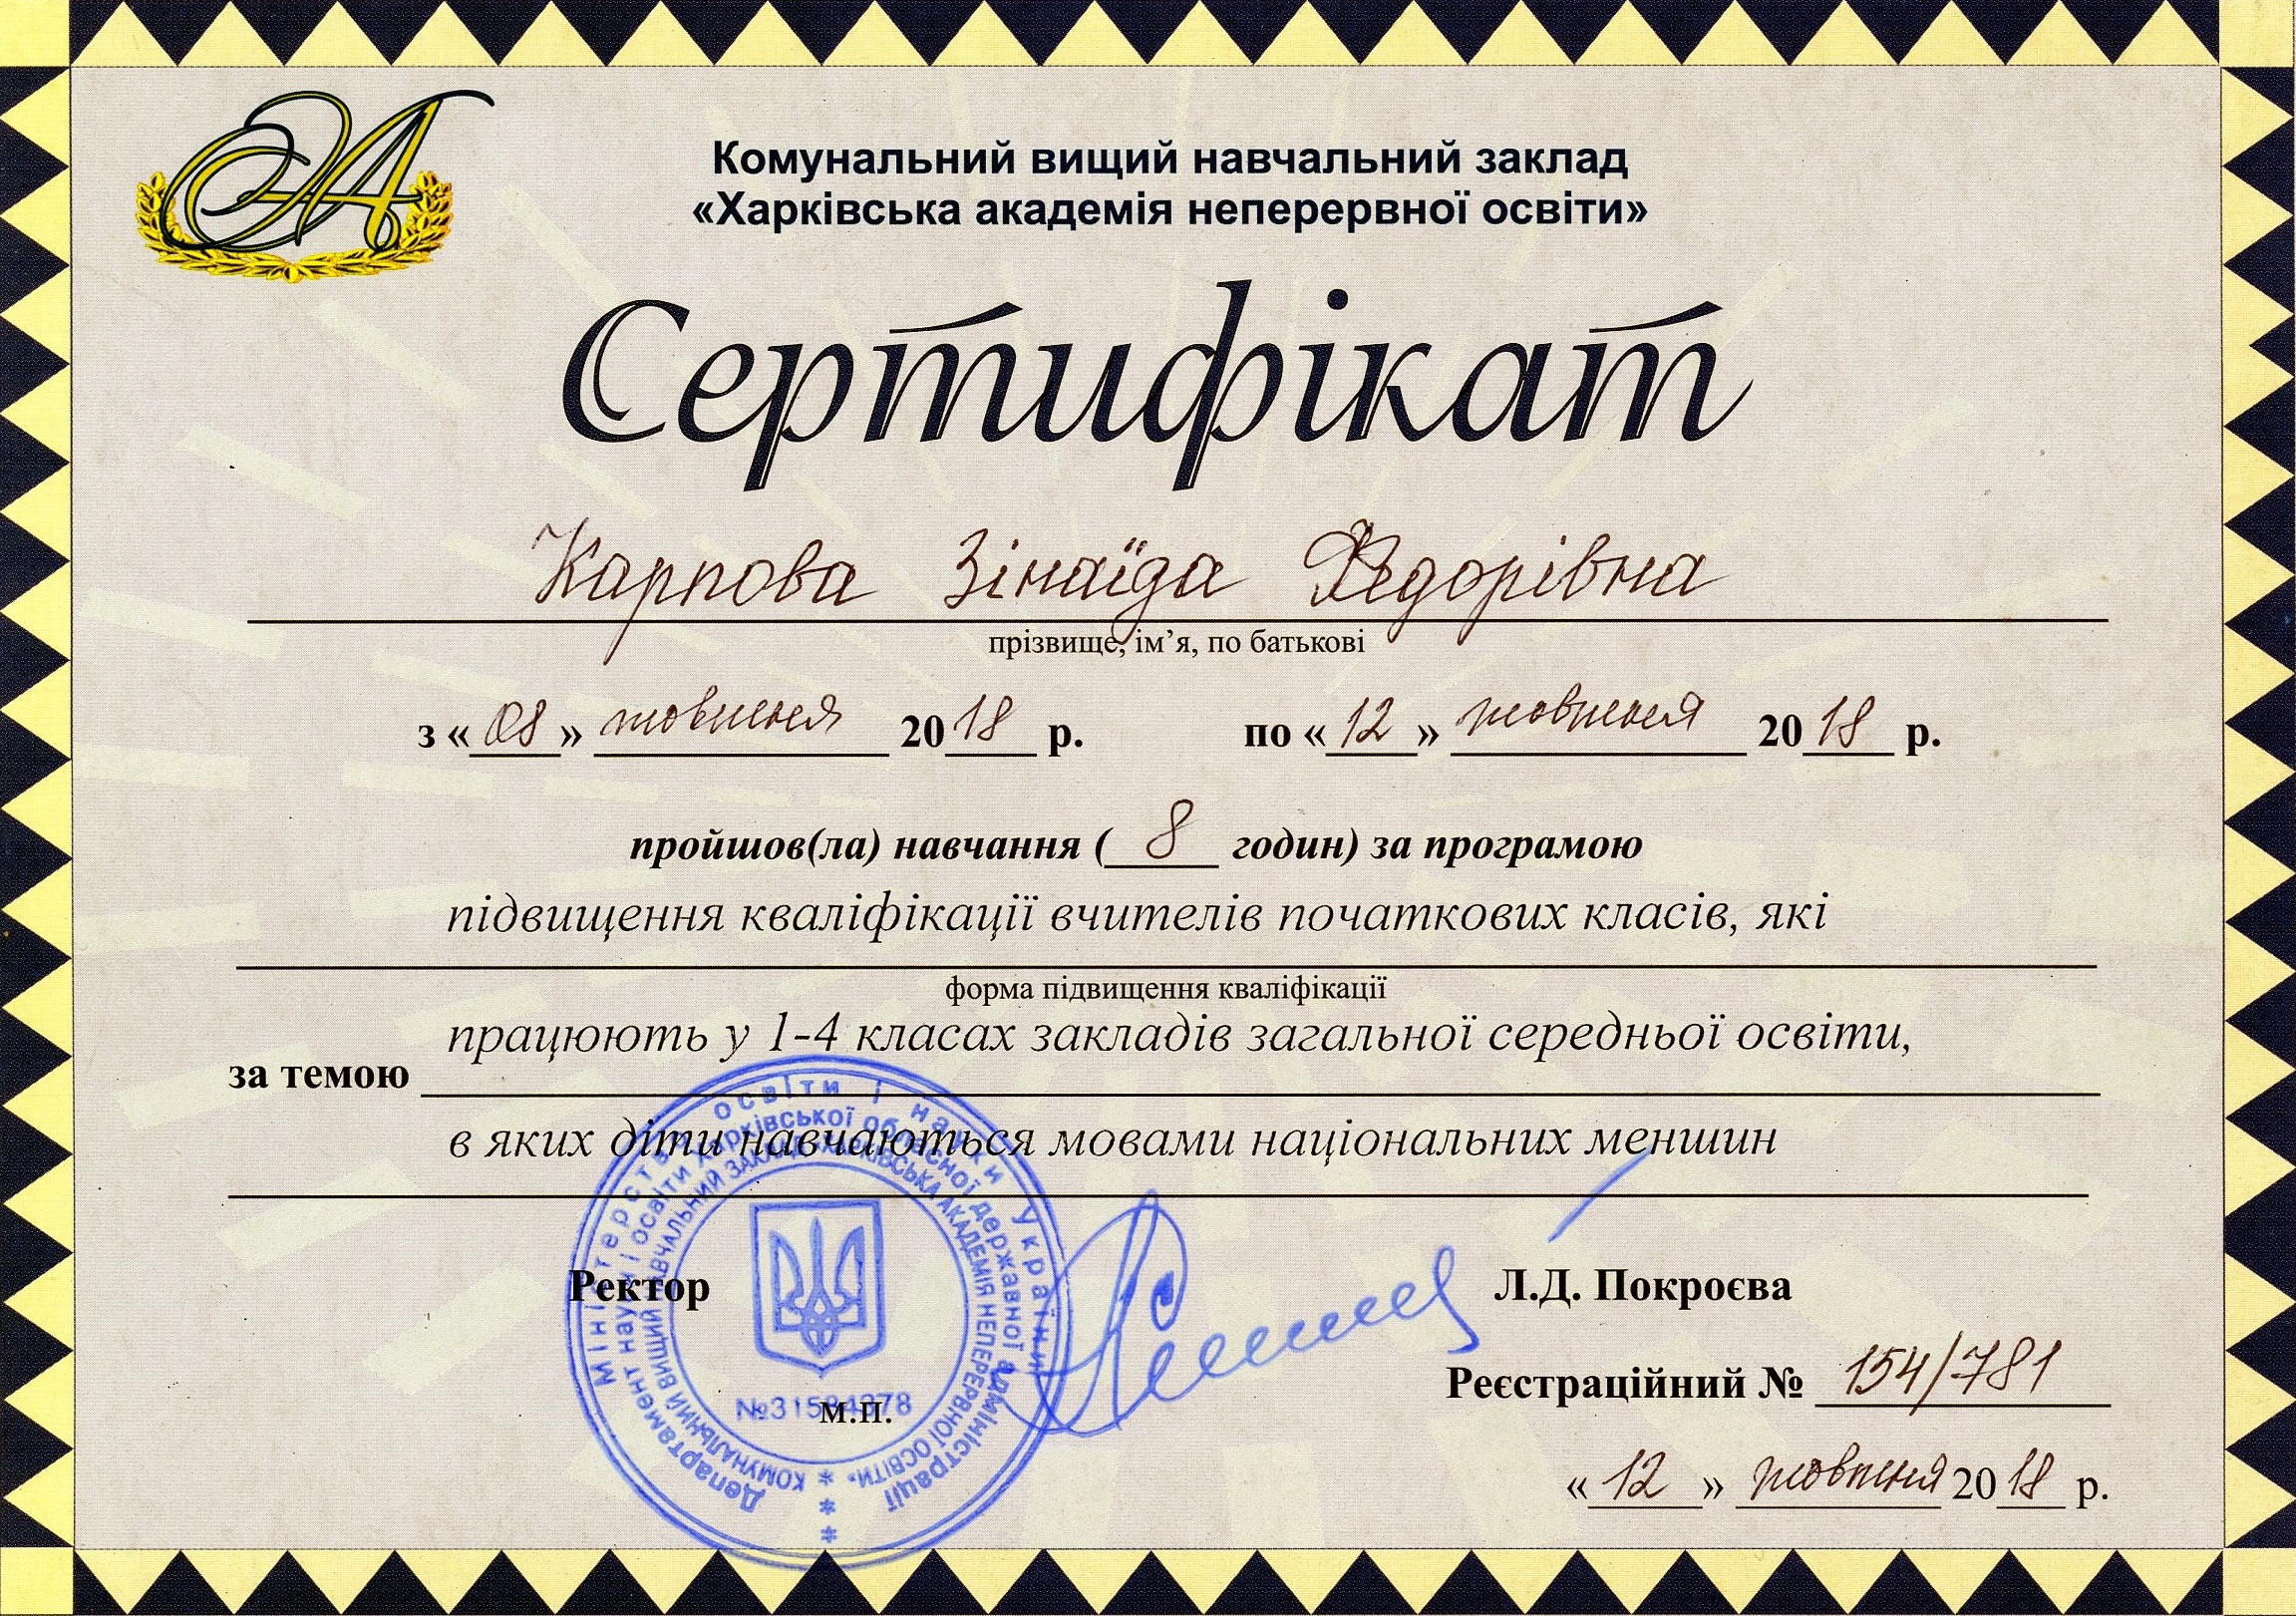 Комунальний вищий навчальний заклад
«Харківська академія неперервної освіти»
Сертифікат
Карпова Зінаїда Федорівна
прізвище, ім’я, по батькові
з «08» жовтня 2018 р. по «12» жовтня 2018 р.
пройшов(ла) навчання ( 8 годин) за програмою
підвищення кваліфікації вчителів початкових класів, які
форма підвищення кваліфікації
працюють у 1-4 класах закладів загальної середньої освіти,
за темою
в яких діти навчаються мовами національних меншин
Міністерство освіти і науки України
Департамент науки і освіти Харківської обласної державної адміністрації
КОМУНАЛЬНИЙ ВИЩИЙ НАВЧАЛЬНИЙ ЗАКЛАД «ХАРКІВСЬКА АКАДЕМІЯ НЕПЕРЕРВНОЇ ОСВІТИ»
Ректор Л.Д. Покроєва
Реєстраційний № 154/781
М.П.
«12» жовтня 2018 р.